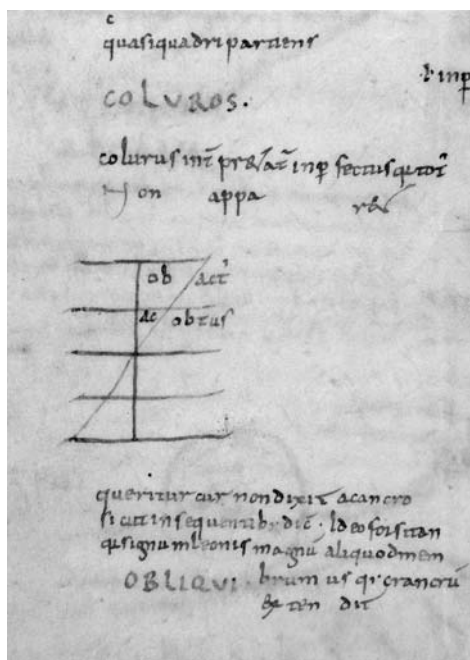 c
quasiquadripartiens
COLUROS.
colurus int̄ p̄r&at̄ inp̄fectus
non appa r&
ob act̄
ac obtus
queritur cur non dixit acancro
sicut in sequentib; dic̄. Ideo forsitan
q signum leonis magnū aliquod mem
OBLIQUI. brum us q; cancrū
ex ten dit